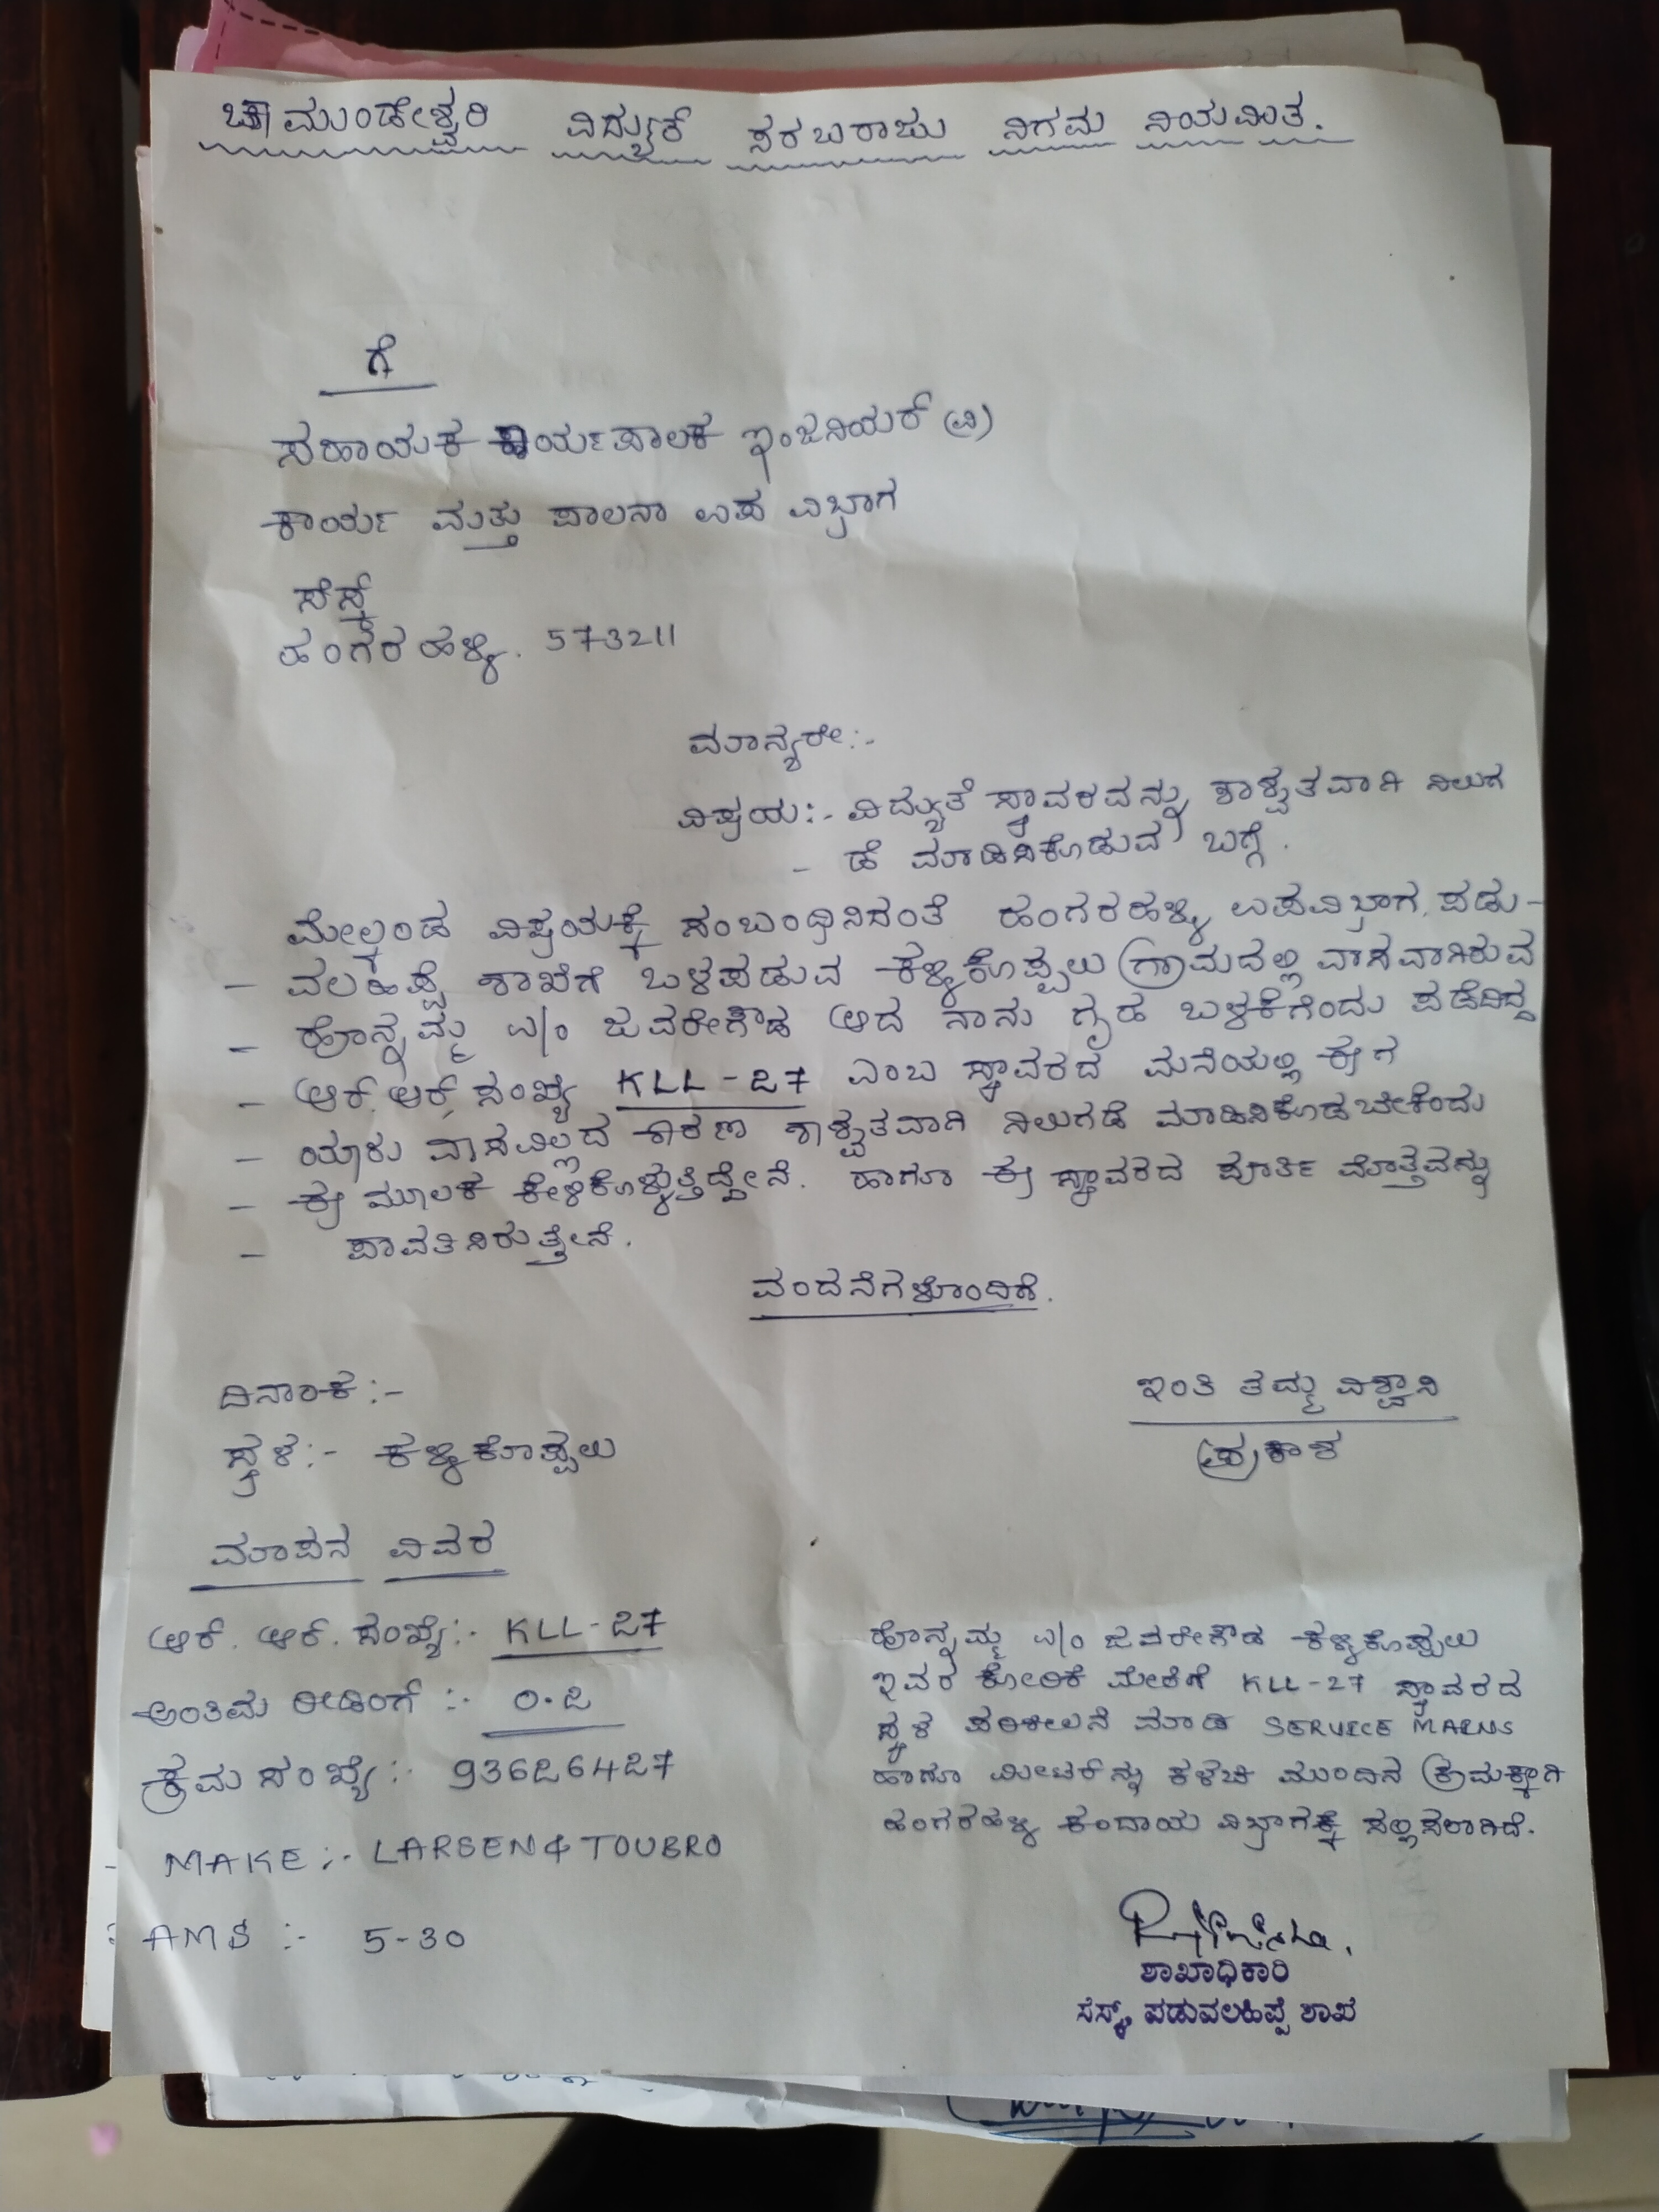 ಚಾಮುಂಡೇಶ್ವರಿ ವಿದ್ಯುತ್ ಸರಬರಾಜು ನಿಗಮ ನಿಯಮಿತ.
ಗೆ
ಸಹಾಯಕ ಕಾರ್ಯಪಾಲಕ ಇಂಜನಿಯರ್ (ವಿ)
ಕಾರ್ಯ ಮತ್ತು ಪಾಲನಾ ಉಪ ವಿಭಾಗ
ಸೆಸ್ಕ್
ಹಂಗರಹಳ್ಳಿ. 573211
ಮಾನ್ಯರೇ:-
ವಿಷಯ:- ವಿದ್ಯುತ್ ಸ್ಥಾವರವನ್ನು ಶಾಶ್ವತವಾಗಿ ನಿಲುಗ
- ಡೆ ಮಾಡಿಸಿಕೊಡುವ ಬಗ್ಗೆ.
ಮೇಲ್ಕಂಡ ವಿಷಯಕ್ಕೆ ಸಂಬಂಧಿಸಿದಂತೆ ಹಂಗರಹಳ್ಳಿ ಉಪವಿಭಾಗ, ಪಡು-
- ವಲಹಿಪ್ಪೆ ಶಾಖೆಗೆ ಒಳಪಡುವ ಕಳ್ಳಿಕೊಪ್ಪಲು ಗ್ರಾಮದಲ್ಲಿ ವಾಸವಾಗಿರುವ
- ಹೊನ್ನಮ್ಮ ಎ/ಂ ಜವರೇಗೌಡ ಆದ ನಾನು ಗೃಹ ಬಳಕೆಗೆಂದು ಪಡೆದಿದ್ದ
- ಆರ್. ಆರ್, ಸಂಖ್ಯೆ KLL-27 ಎಂಬ ಸ್ಥಾವರದ ಮನೆಯಲ್ಲಿ ಈಗ
- ಯಾರು ವಾಸವಿಲ್ಲದ ಕಾರಣ ಶಾಶ್ವತವಾಗಿ ನಿಲುಗಡೆ ಮಾಡಿಸಿಕೊಡಬೇಕೆಂದು
- ಈ ಮೂಲಕ ಕೇಳಿಕೊಳ್ಳುತ್ತಿದ್ದೇನೆ. ಹಾಗೂ ಈ ಸ್ಥಾವರದ ಪೂರ್ತಿ ಮೊತ್ತವನ್ನು
- ಪಾವತಿಸಿರುತ್ತೇನೆ.
ವಂದನೆಗಳೊಂದಿಗೆ.
ದಿನಾಂಕ:-
ಇಂತಿ ತಮ್ಮ ವಿಶ್ವಾಸಿ
ಸ್ಥಳ:- ಕಳ್ಳಿಕೊಪ್ಪಲು
ಪ್ರಕಾಶ
ಮಾಪನ ವಿವರ
ಆರ್. ಆರ್. ಸಂಖ್ಯೆ:- KLL-27
ಅಂತಿಮ ರೀಡಿಂಗ್ :- 0.2
ಕ್ರಮ ಸಂಖ್ಯೆ:- 93626427
MAKE:- LARSEN & TOUBRO
AMS :- 5-30
ಹೊನ್ನಮ್ಮ ಎ/ಂ ಜವರೇಗೌಡ ಕಳ್ಳಿಕೊಪ್ಪಲು
ಇವರ ಕೋರಿಕೆ ಮೇರೆಗೆ KLL-27 ಸ್ಥಾವರದ
ಸ್ಥಳ ಪರಿಶೀಲನೆ ಮಾಡಿ SERVICE MAINS
ಹಾಗೂ ಮೀಟರ್‌ನ್ನು ಕಳಚಿ ಮುಂದಿನ ಕ್ರಮಕ್ಕಾಗಿ
ಹಂಗರಹಳ್ಳಿ ಕಂದಾಯ ವಿಭಾಗಕ್ಕೆ ಸಲ್ಲಿಸಲಾಗಿದೆ.
ಶಾಖಾಧಿಕಾರಿ
ಸೆಸ್ಕ್, ಪಡುವಲಹಿಪ್ಪೆ ಶಾಖೆ